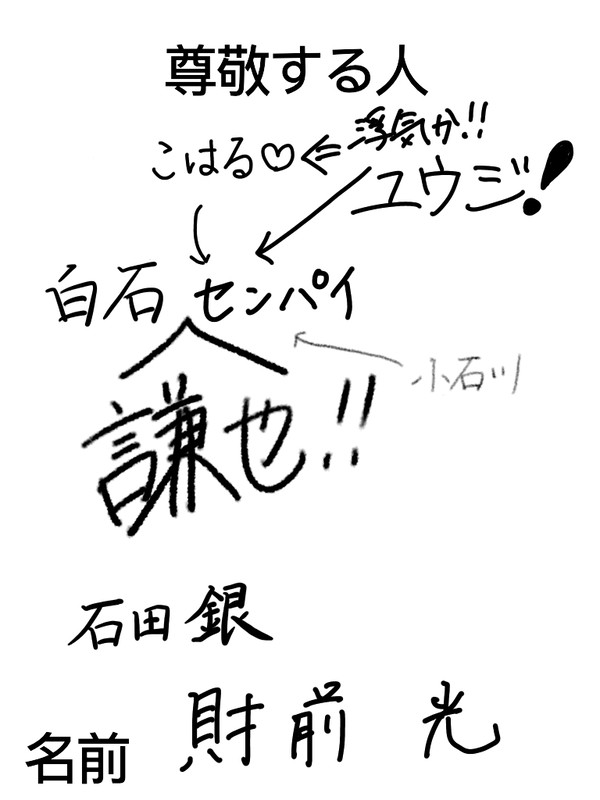 尊敬する人
浮気か!!
こはる♡
ユウジ!
白石 センパイ
小石川
謙也!!
石田銀
名前 財前 光